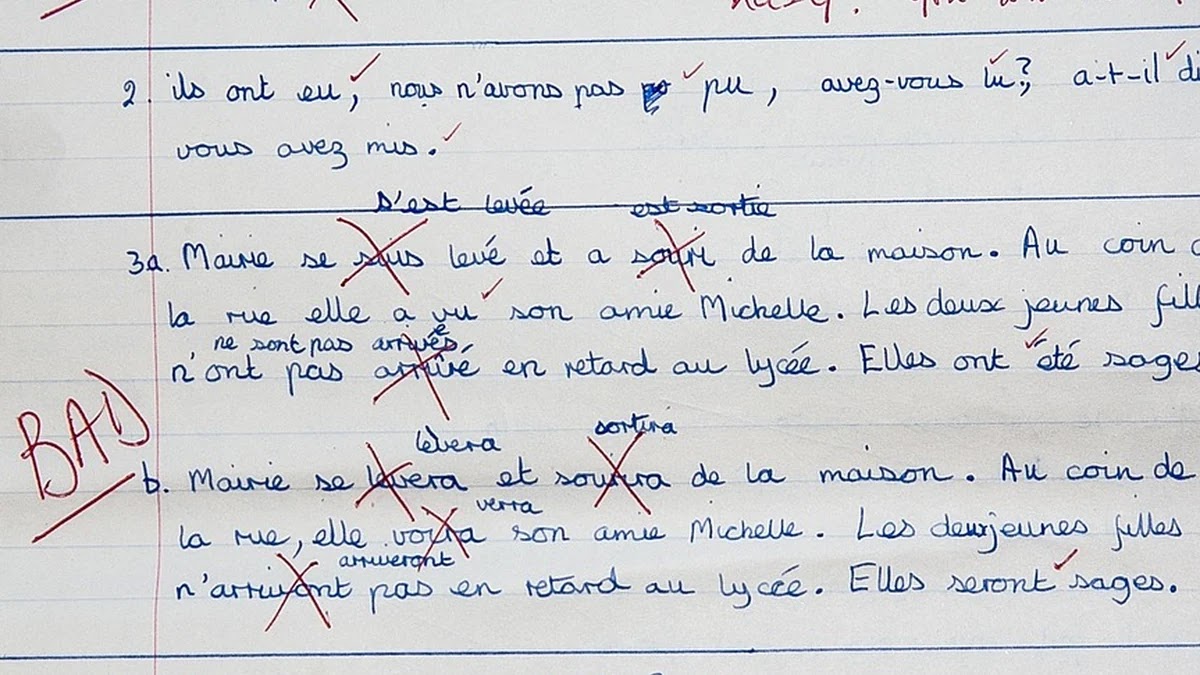 2. ils ont eu, nous n'avons pas pu, avez-vous lu? a-t-il di
vous avez mis.
s'est levée est sortie
3a. Mairie se suis levé et a souri de la maison. Au coin
la rue elle a vu son amie Michelle. Les deux jeunes fill
ne sont pas arrivées
n'ont pas arrivé en retard au lycée. Elles ont été sages
BAD
lèvera sortira
b. Mairie se levera et sourira de la maison. Au coin de
verra
la rue, elle voira son amie Michelle. Les deux jeunes filles
arriveront
n'arrivont pas en retard au lycée. Elles seront sages.